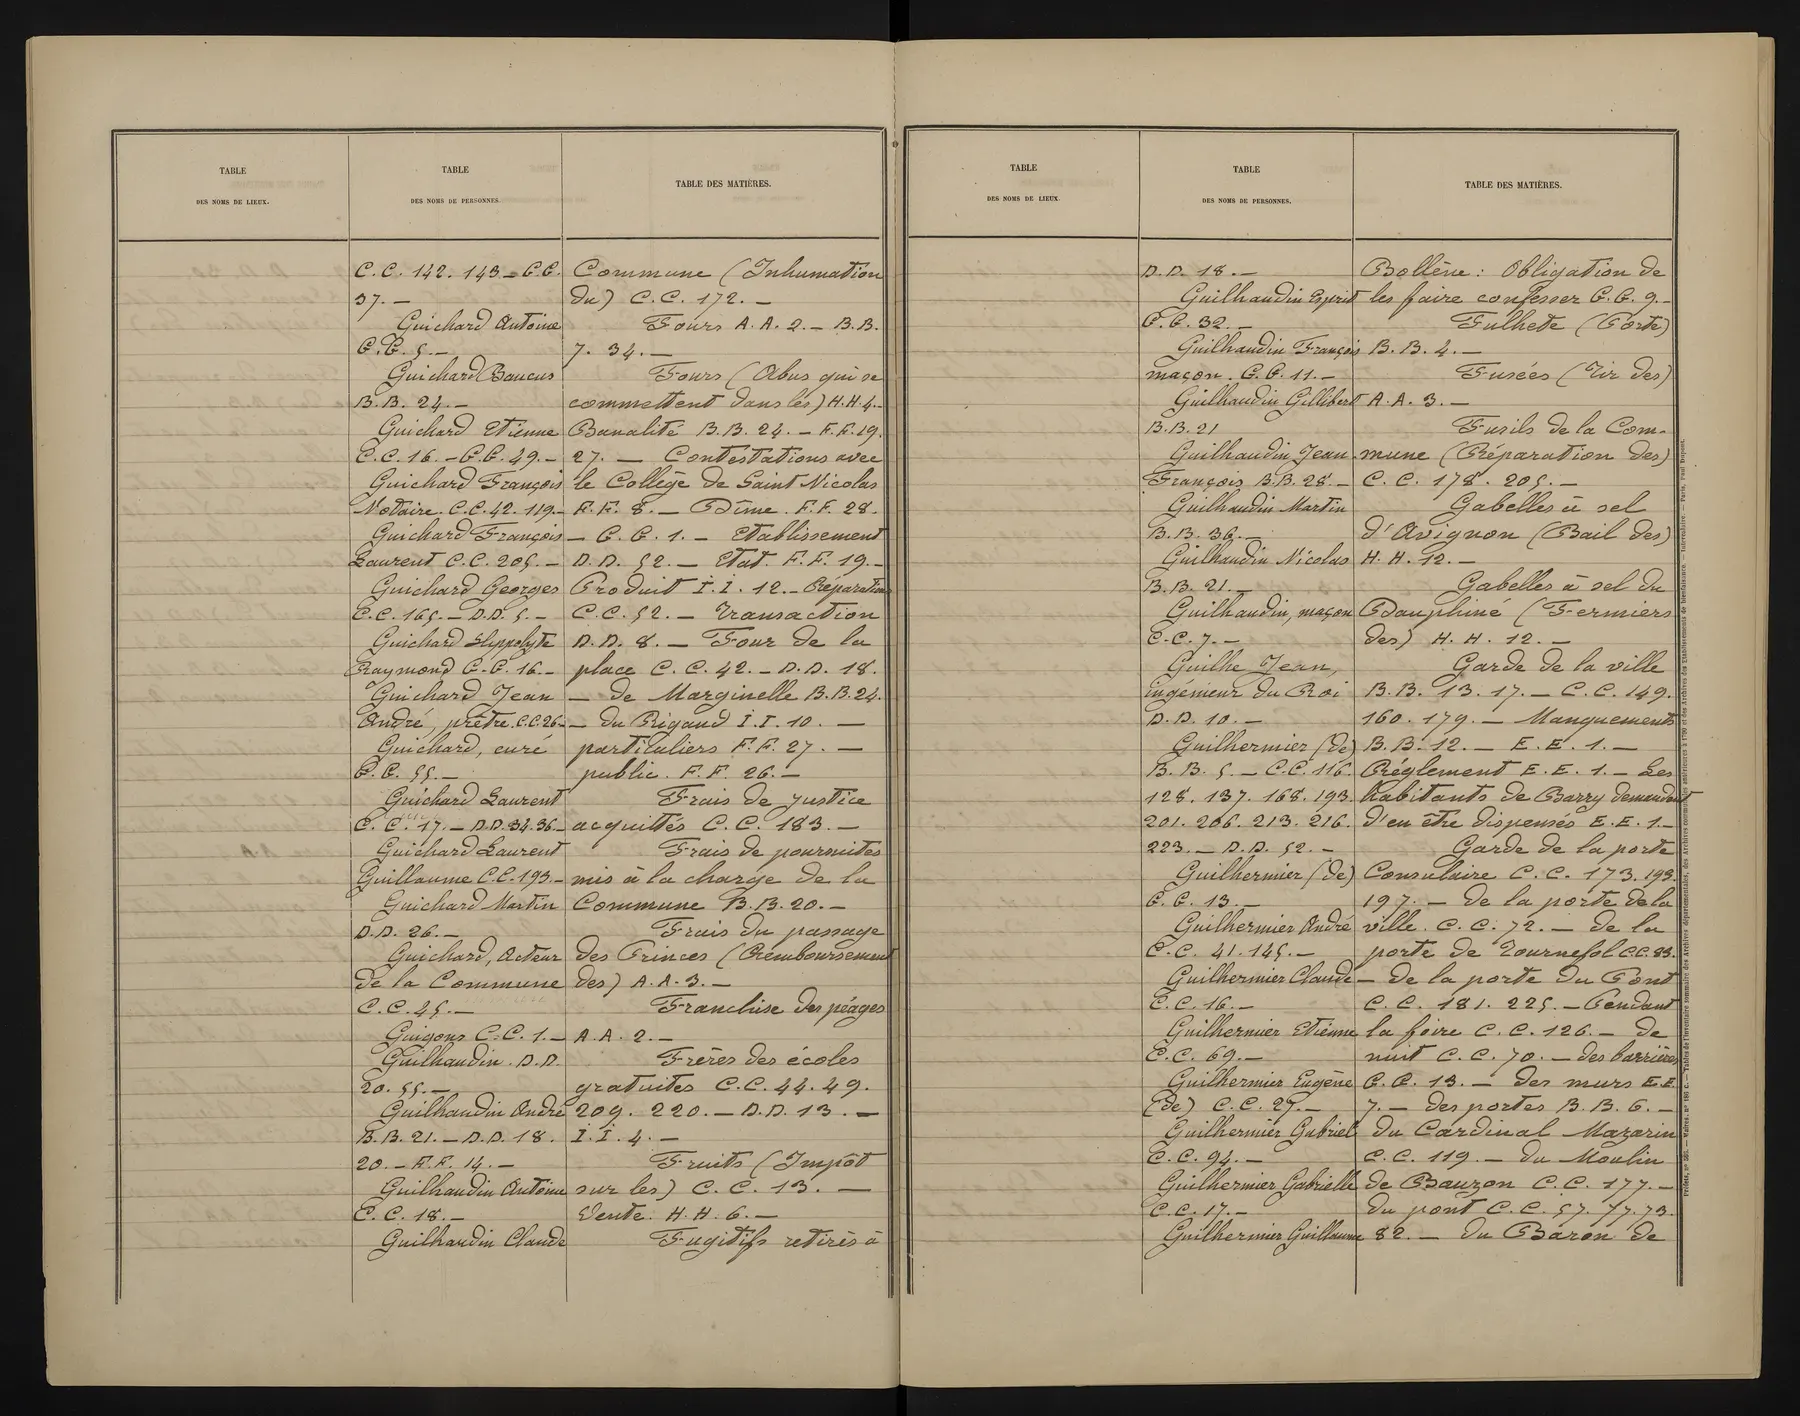 TABLE
DES NOMS DE LIEUX.
TABLE
DES NOMS DE PERSONNES.
C.C. 142. 143. – G.G.
37. –
Guichard Antoine
G.G. 5. –
Guichard Baucus
B.B. 24. –
Guichard Etienne
C.C. 16. – G.G. 49. –
Guichard François
Notaire. C.C. 42. 119. –
Guichard François
Laurent C.C. 205. –
Guichard Georges
C.C. 165. – D.D. 5. –
Guichard Hippolyte
Raymond G.G. 16. –
Guichard Jean
André, prêtre. C.C. 26. –
Guichard, curé
G.G. 55. –
Guichard Laurent
C.C. 17. – D.D. 34. 36. –
Guichard Laurent
Guillaume C.C. 193. –
Guichard Martin
D.D. 26. –
Guichard, Acteur
de la Commune
C.C. 45. –
Guigons C.C. 1. –
Guilhaudin. D.D.
20. 55. –
Guilhaudin André
B.B. 21. – D.D. 18.
20. – F.F. 14. –
Guilhaudin Antoine
C.C. 18. –
Guilhaudin Claude
TABLE DES MATIÈRES.
Commune (Inhumation
du) C.C. 172. –
Fours A.A. 2. – B.B.
7. 34. –
Fours (Abus qui se
commettent dans les) H.H. 4. –
Banalité B.B. 24. – F.F. 19.
27. – Contestations avec
le Collège de Saint Nicolas
F.F. 8. – Dîme. F.F. 28.
– G.G. 1. – Etablissement
D.D. 52. – Etat. F.F. 19. –
Produit I.I. 12. – Réparation
C.C. 52. – Transaction
D.D. 8. – Four de la
place C.C. 42. – D.D. 18.
– de Marginelle B.B. 24.
– du Rigaud I.I. 10. –
particuliers F.F. 27. –
public. F.F. 26. –
Frais de justice
acquittés C.C. 183. –
Frais de poursuites
mis à la charge de la
Commune B.B. 20. –
Frais du passage
des Princes (Remboursement
des) A.A. 3. –
Franchise des péages
A.A. 2. –
Frères des écoles
gratuites C.C. 44. 49.
209. 220. – D.D. 13. –
I.I. 4. –
Fruits (Impôt
sur les) C.C. 13. –
Vente. H.H. 6. –
Fugitifs retirés à
TABLE
DES NOMS DE LIEUX.
TABLE
DES NOMS DE PERSONNES.
D.D. 18. –
Guilhaudin Esprit
G.G. 32. –
Guilhaudin François
maçon. G.G. 11. –
Guilhaudin Gillibert
B.B. 21
Guilhaudin Jean
François B.B. 28. –
Guilhaudin Martin
B.B. 36. –
Guilhaudin Nicolas
B.B. 21. –
Guilhaudin, maçon
C.C. 7. –
Guilhe Jean,
ingénieur du Roi
D.D. 10. –
Guilhermier (de)
B.B. 5. – C.C. 116.
128. 137. 168. 193.
201. 206. 213. 216.
223. – D.D. 52. –
Guilhermier (de)
G.G. 13. –
Guilhermier André
C.C. 41. 145. –
Guilhermier Claude
C.C. 16. –
Guilhermier Etienne
C.C. 69. –
Guilhermier Eugène
(de) C.C. 27. –
Guilhermier Gabriel
C.C. 94. –
Guilhermier Gabrielle
C.C. 17. –
Guilhermier Guillaume
TABLE DES MATIÈRES.
Bollène : Obligation de
les faire confesser G.G. 9. –
Fulhete (Porte)
B.B. 4. –
Fusées (Tir des)
A.A. 3. –
Fusils de la Com-
mune (Réparation des)
C.C. 178. 205. –
Gabelles à sel
d'Avignon (Bail des)
H.H. 12. –
Gabelles à sel du
Dauphiné (Fermiers
des) H.H. 12. –
Garde de la ville
B.B. 13. 17. – C.C. 149.
160. 179. – Manquements
B.B. 12. – E.E. 1. –
Réglement E.E. 1. – Les
habitants de Barry demandent
d'en être dispensés E.E. 1. –
Garde de la porte
Consulaire C.C. 173. 193.
197. – de la porte de la
ville. C.C. 72. – de la
porte de Tournefol C.C. 23.
– de la porte du Pont
C.C. 181. 225. – Pendant
la foire C.C. 126. – de
nuit C.C. 70. – des barrières
G.G. 13. – des murs E.E.
7. – des portes B.B. 6. –
du Cardinal Mazarin
C.C. 119. – du Moulin
de Bauzon C.C. 177. –
du pont C.C. 57. 77. 73.
82. – du Baron de